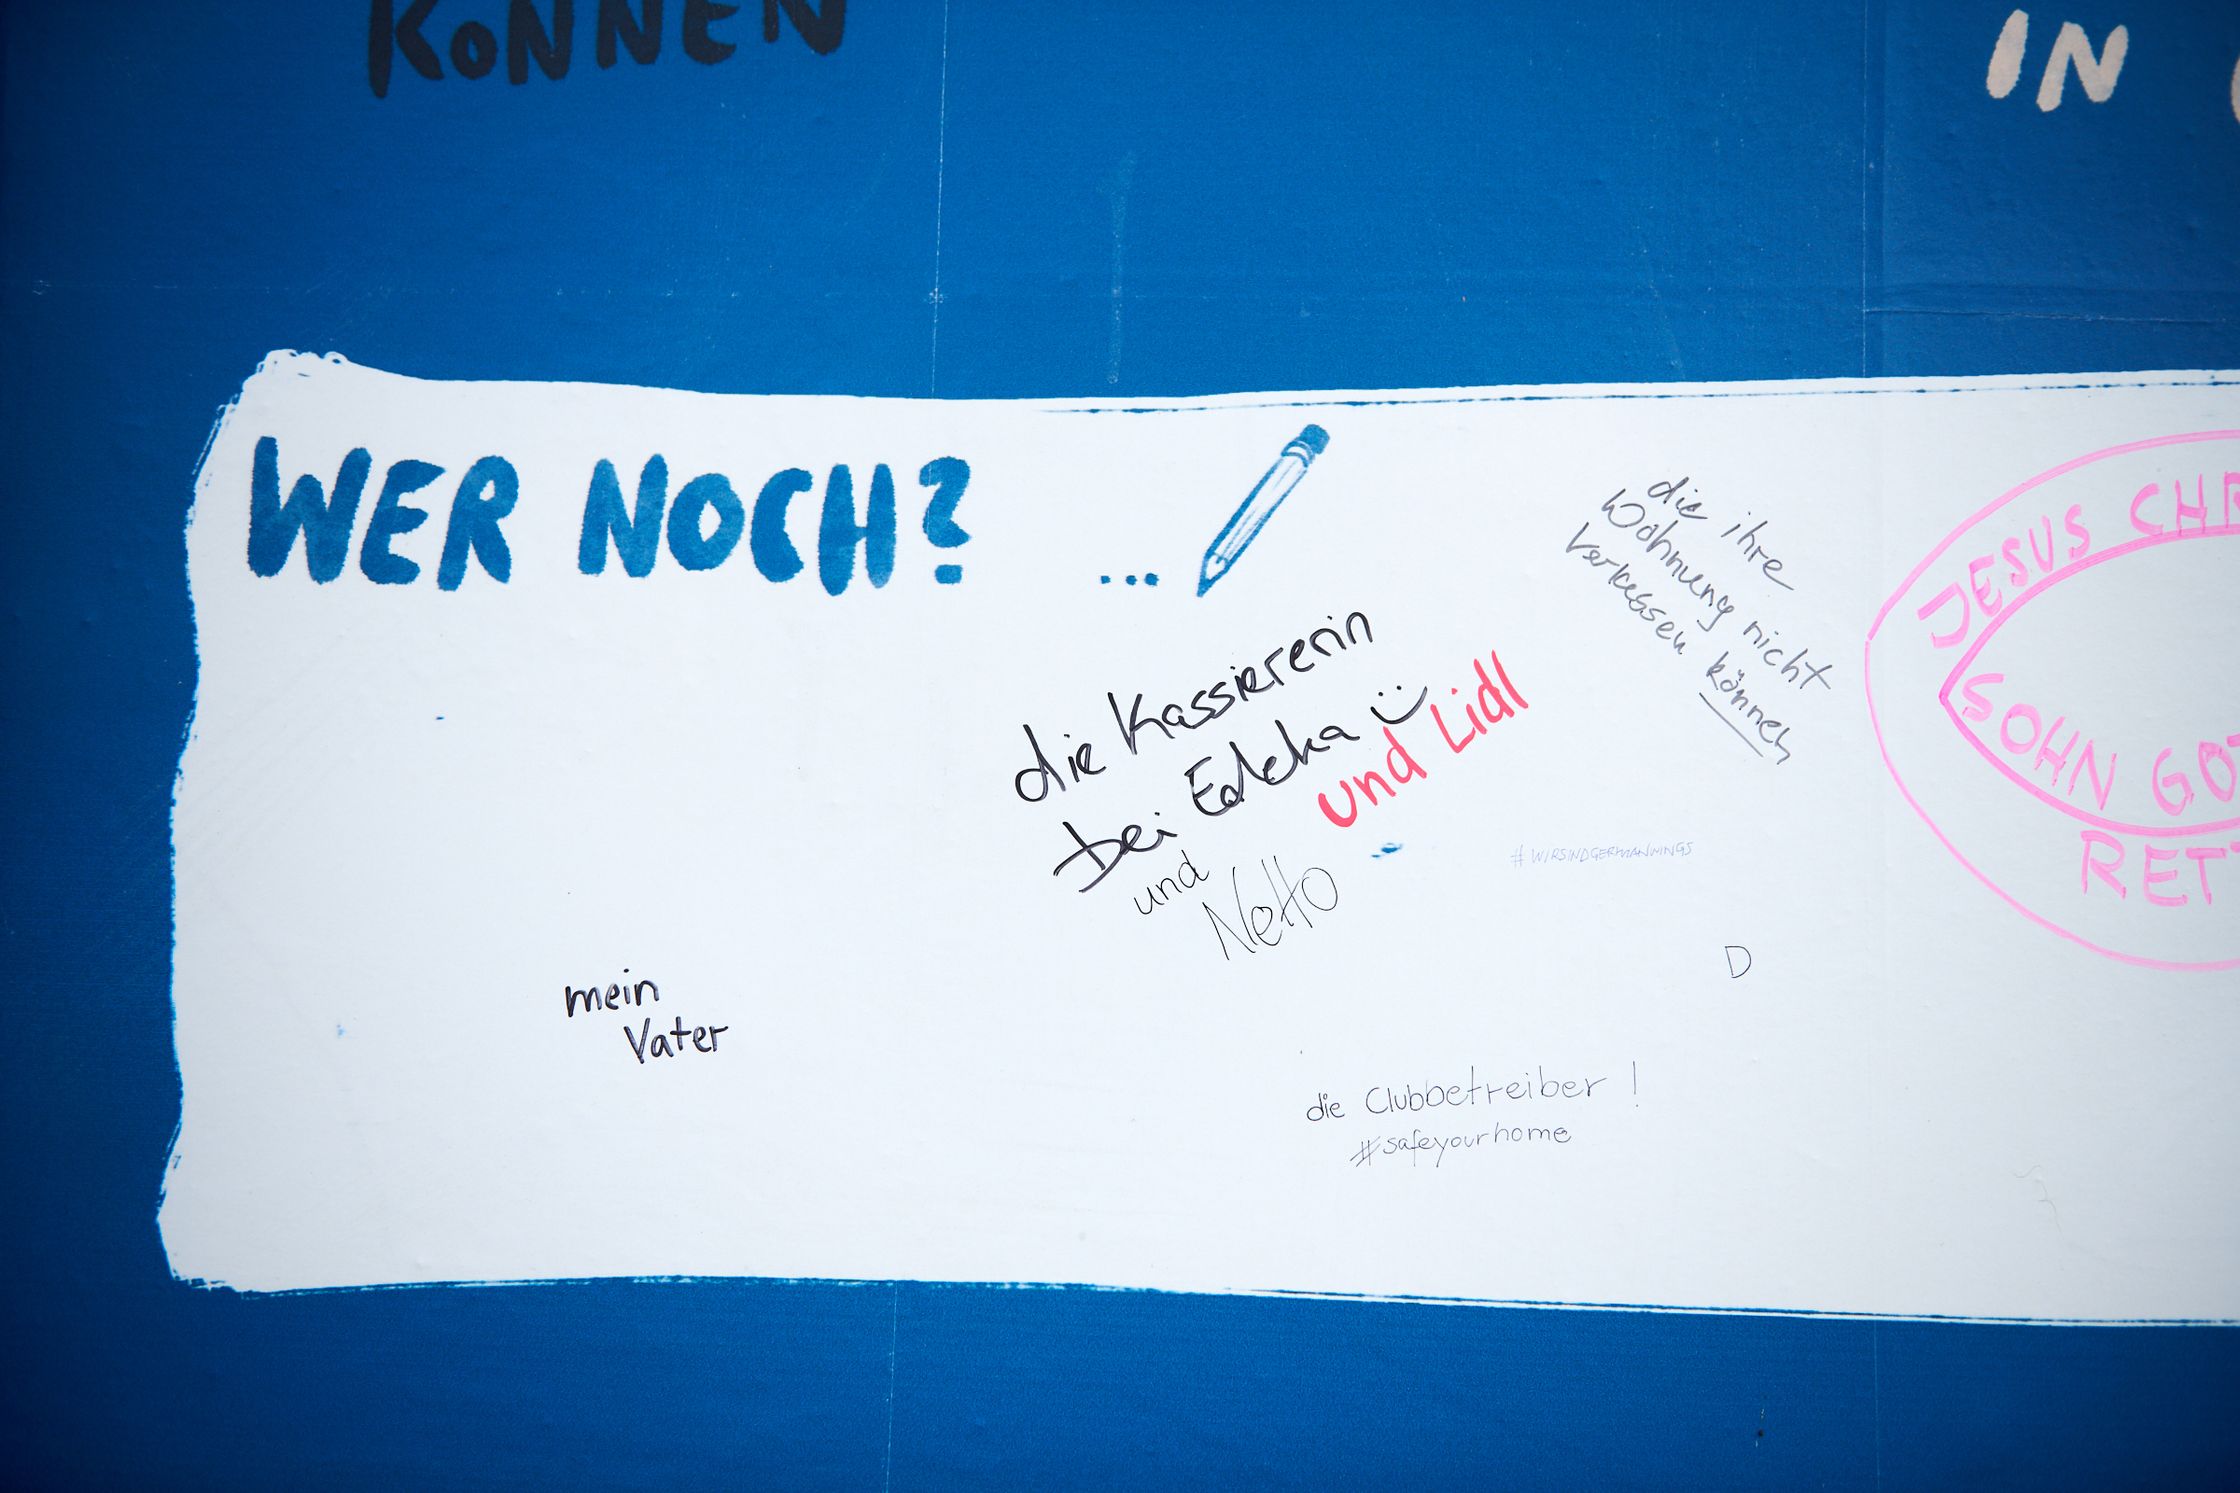 KÖNNEN
IN
WER NOCH? ...
die ihre
Wohnung nicht
verlassen können
die Kassiererin
bei Edeka
und Lidl
und
Netto
#WIRSINDGERMANWINGS
JESUS CHR
SOHN GOT
RETT
D
mein
Vater
die Clubbetreiber !
#safeyourhome